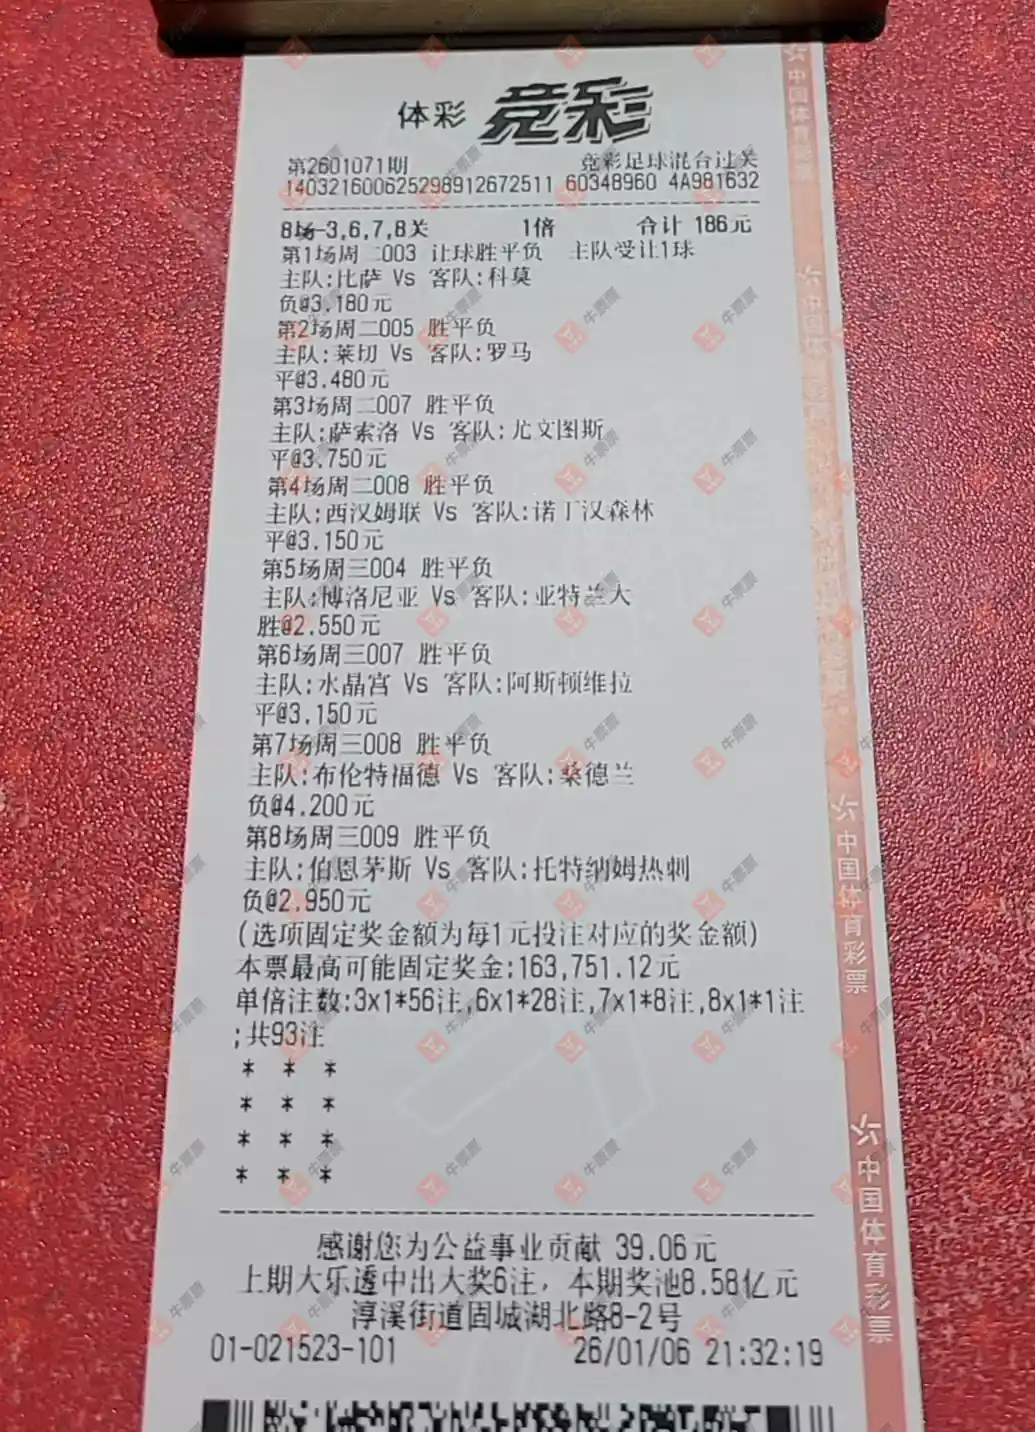 体彩 竞彩
第2601071期 竞彩足球混合过关
140321600625298912672511 60348960 4A981632
8场-3,6,7,8关 1倍 合计 186元
第1场周二003 让球胜平负 主队受让1球
主队:比萨 Vs 客队:科莫
负@3.180元
第2场周二005 胜平负
主队:莱切 Vs 客队:罗马
平@3.480元
第3场周二007 胜平负
主队:萨索洛 Vs 客队:尤文图斯
平@3.750元
第4场周二008 胜平负
主队:西汉姆联 Vs 客队:诺丁汉森林
平@3.150元
第5场周三004 胜平负
主队:博洛尼亚 Vs 客队:亚特兰大
胜@2.550元
第6场周三007 胜平负
主队:水晶宫 Vs 客队:阿斯顿维拉
平@3.150元
第7场周三008 胜平负
主队:布伦特福德 Vs 客队:桑德兰
负@4.200元
第8场周三009 胜平负
主队:伯恩茅斯 Vs 客队:托特纳姆热刺
负@2.950元
(选项固定奖金额为每1元投注对应的奖金额)
本票最高可能固定奖金:163,751.12元
单倍注数:3x1*56注,6x1*28注,7x1*8注,8x1*1注
;共93注
* * *
* * *
* * *
* * *
感谢您为公益事业贡献 39.06元
上期大乐透中出大奖6注，本期奖池8.58亿元
淳溪街道固城湖北路8-2号
01-021523-101 26/01/06 21:32:19
中国体育彩票
中国体育彩票
中国体育彩票
牛票票